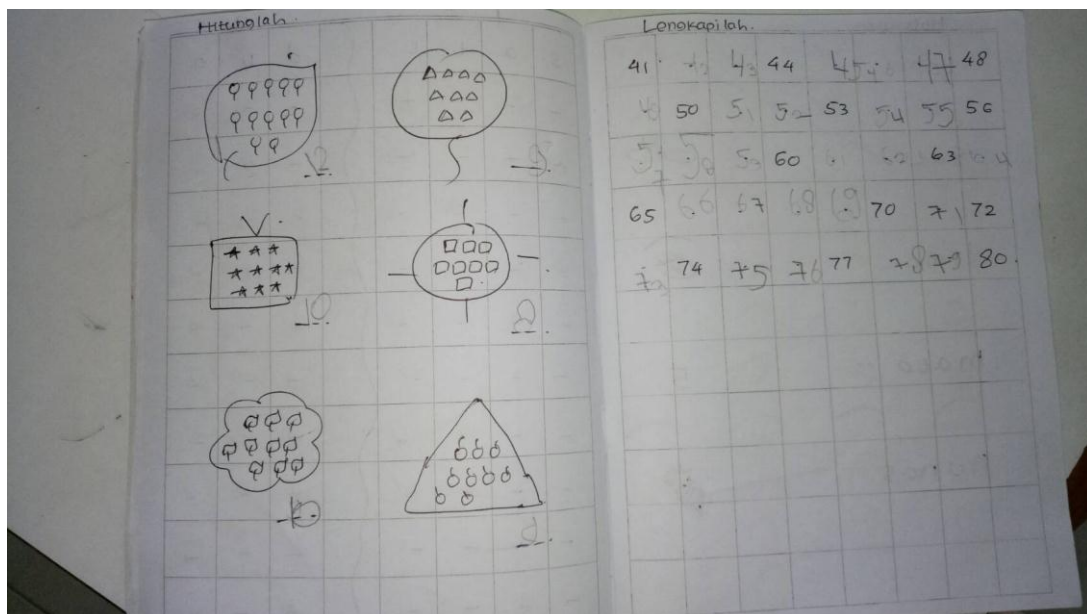 Hitunglah.
12
9
10
8
10
9
Lengkapilah.
41 43 44 45 46 47 48
50 51 52 53 54 55 56
57 58 59 60 61 62 63 64
65 66 67 68 69 70 71 72
73 74 75 76 77 78 79 80